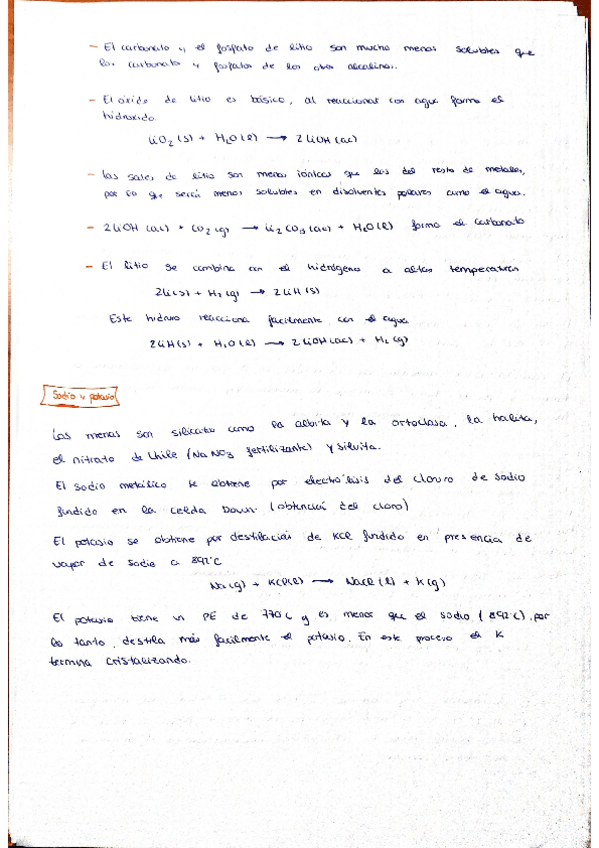 - El carbonato y el fosfato de litio son mucho menos solubles que
los carbonatos y fosfatos de los otros alcalinos.
- El óxido de litio es básico, al reaccionar con agua forma el
hidróxido.
LiO2 (s) + H2O (l) → 2 LiOH (ac)
- Las sales de litio son menos iónicas que las del resto de metales,
por lo que serán menos solubles en disolventes polares como el agua.
- 2 LiOH (ac) + CO2 (g) → Li2CO3 (ac) + H2O (l) forma el carbonato
- El litio se combina con el hidrógeno a altas temperaturas
2 Li (s) + H2 (g) → 2 LiH (s)
Este hidruro reacciona facilmente con el agua
2 LiH (s) + H2O (l) → 2 LiOH (ac) + H2 (g)
Sodio y potasio
Las menas son silicatos como la albita y la ortoclasa, la halita,
el nitrato de Chile (NaNO3 fertilizante) y silvita.
El sodio metálico se obtiene por electrólisis del cloruro de sodio
fundido en la celda Down. (obtención del cloro)
El potasio se obtiene por destilación de KCl fundido en presencia de
vapor de sodio a 892°C
Na (g) + KCl (l) → NaCl (l) + K (g)
El potasio tiene un PE de 770°C y es menor que el sodio (892°C), por
lo tanto, destila más facilmente el potasio. En este proceso el K
termina cristalizando.